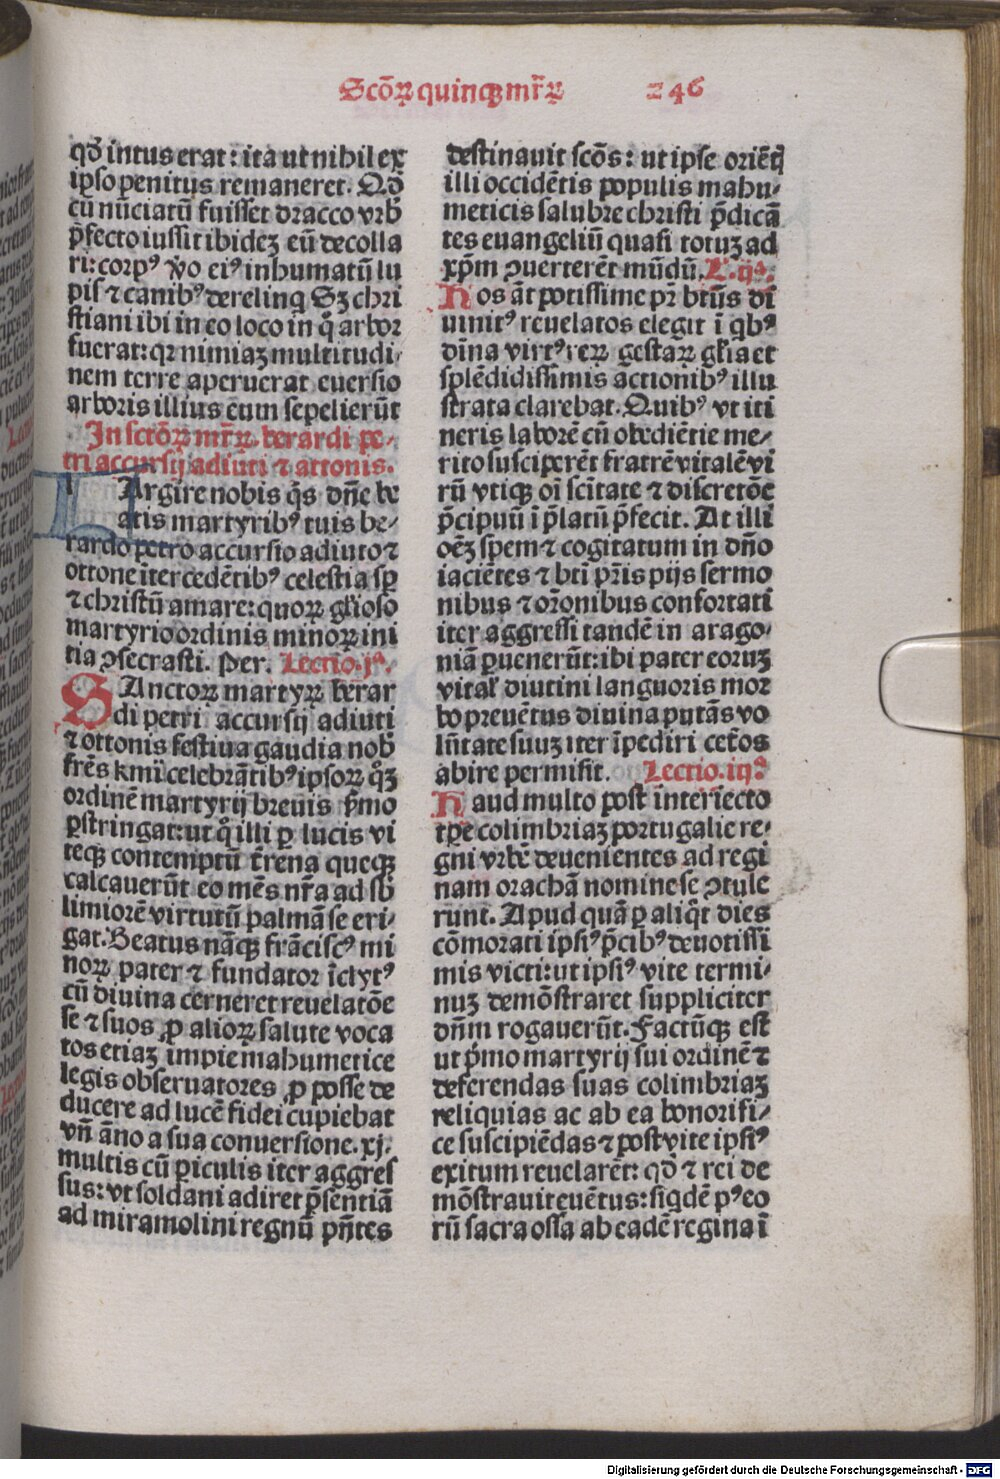 Scõꝝ quinqꝫ mr̃ꝝ 246
qd̃ intus erat: ita ut nihil ex
ipso penitus remaneret. Qd̃
cũ nũciatũ fuisset dracco vrb̃
p̃fecto iussit ibidez eũ decolla
ri: corpꝰ ꝟo eiꝰ inhumatũ lu
pis ⁊ canibꝰ derelinq̃ Sꝫ chri
stiani ibi in eo loco in q̊ arbor
fuerat: qꝛ nimiaꝫ multitudi⸗
nem terre aperuerat euersio
arboris illius eum sepelierũt
In sctõꝝ mr̃ꝝ. berardi pe⸗
tri accursij adiuti ⁊ attonis.
LArgire nobis q̃s dñe be
atis martyribꝰ tuis be⸗
rardo petro accursio adiuto ⁊
ottone ĩtercedẽtibꝰ celestia sp̱
⁊ christũ amare: quoꝝ gl̃ioso
martyrio ordinis minoꝝ ini
tia ꝯsecrasti. Per. Lectio. jᵃ.
SAnctoꝝ martyꝝ berar
di petri accursij adiuti
⁊ ottonis festiua gaudia nob̃
frẽs kmĩ celebrãtibꝰ ipsoꝝ q̃ꝫ
ordinẽ martyrij breuis p̃mo
ꝑstringat: ut q̊ illi ꝑ lucis vi
teqꝫ contemptũ t̃rena queqꝫ
calcauerũt eo mẽs nr̃a ad sb̃
limiorẽ virtutũ palmã se eri⸗
gat. Beatus nãqꝫ frãciscꝰ mi
noꝝ pater ⁊ fundator ĩclytꝰ
cũ diuina cerneret reuelatõe
se ⁊ suos ꝓ alioꝝ salute voca
tos etiaꝫ impie mahumetice
legis obseruatores ꝓ posse de
ducere ad lucẽ fidei cupiebat
vñ ãno a sua conuersione. xj.
multis cũ ꝑiculis ĩter aggres
sus: vt soldani adiret p̃sentiã
ad miramolini regnũ pñtes
destinauit scõs: ut ipse oriẽtꝭ
illi occidẽtis populis mahu⸗
meticis salubre christi p̃dicã
tes euangeliũ quasi totuꝫ ad
xp̃m ꝯuerterẽt mũdũ. L'. ijᵃ.
Hos ãt potissime pr̃ btũs di
uinitꝰ reuelatos elegit ĩ qb̃ꝰ
diĩna virtꝰ reꝝ gestaꝝ gl̃ia et
splẽdidissimis actionibꝰ illu
strata clarebat. Quibꝰ vt iti
neris laborẽ cũ obediẽtie me⸗
rito susciperẽt fratrẽ vitalẽ vi
rũ vtiqꝫ oĩ scĩtate ⁊ discretõe
p̃cipuũ ĩ p̃latũ p̃fecit. At illi
oẽꝫ spem ⁊ cogitatum in dño
iaciẽtes ⁊ bti pr̃is pijs sermo
nibus ⁊ or̃onibus confortati
iter aggressi tandẽ in arago⸗
niã ꝑuenerũt: ibi pater eoruꝫ
vital' diutini languoris mor
bo preuẽtus diuina putãs vo
lũtate suuꝫ iter ĩpediri cet̃os
abire permisit. Lectio. iijᵃ
Haud multo post ĩnteriecto
tp̃e colimbriaꝫ portugalie re⸗
gni vrbẽ deuenientes ad regi
nam orachã nomine se ꝯtule
runt. Apud quã ꝑ aliq̊t dies
cõmorati ipsiꝰ p̃cibꝰ deuotissi
mis victi: ut ipsiꝰ vite termi⸗
nuꝫ demõstraret suppliciter
dñm rogauerũt. Factũqꝫ est
ut p̃mo martyrij sui ordinẽ ⁊
deferendas suas colimbriaꝫ
reliquias ac ab ea honorifi⸗
ce suscipiẽdas ⁊ post vite ipsiꝰ
exitum reuelarẽt: qd̃ ⁊ rei de
mõstrauit euẽtus: siqdẽ pꝰ eo
rũ sacra ossa ab eadẽ regina ĩ
Digitalisierung gefördert durch die Deutsche Forschungsgemeinschaft - DFG